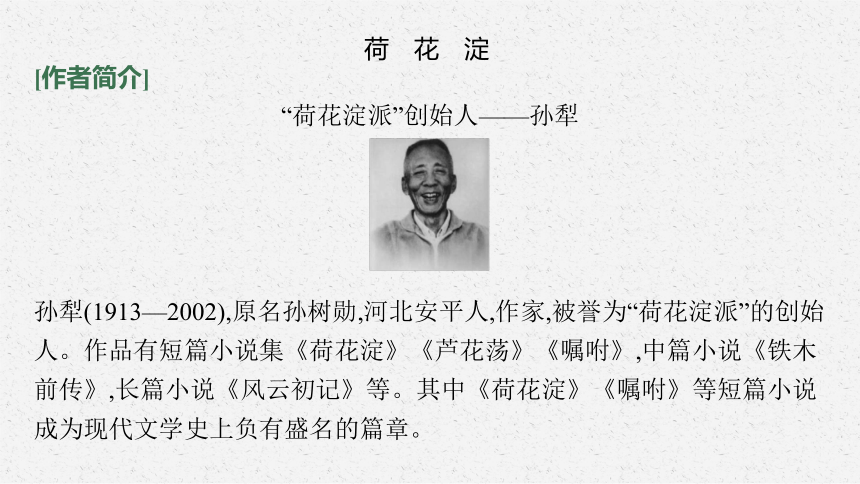 荷 花 淀
[作者简介]
“荷花淀派”创始人——孙犁
孙犁(1913—2002),原名孙树勋,河北安平人,作家,被誉为“荷花淀派”的创始
人。作品有短篇小说集《荷花淀》《芦花荡》《嘱咐》,中篇小说《铁木
前传》,长篇小说《风云初记》等。其中《荷花淀》《嘱咐》等短篇小说
成为现代文学史上负有盛名的篇章。